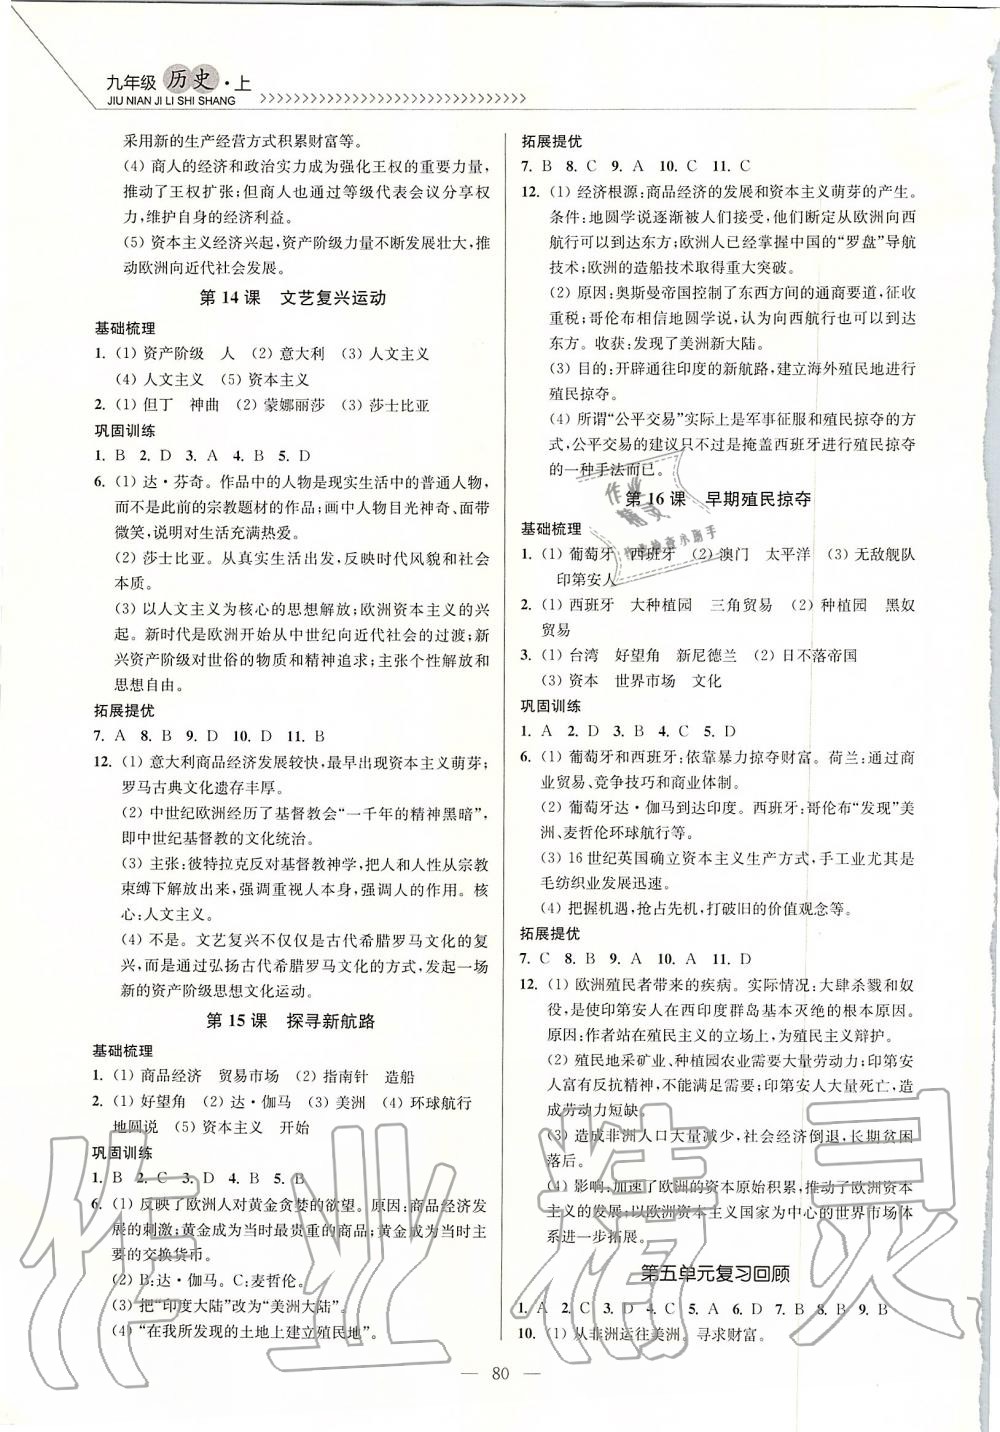 九年级 历史·上
JIU NIAN JI LI SHI SHANG
采用新的生产经营方式积累财富等。
(4) 商人的经济和政治实力成为强化王权的重要力量,
推动了王权扩张;但商人也通过等级代表会议分享权
力,维护自身的经济利益。
(5) 资本主义经济兴起,资产阶级力量不断发展壮大,推
动欧洲向近代社会发展。
第 14 课 文艺复兴运动
基础梳理
1. (1) 资产阶级 人 (2) 意大利 (3) 人文主义
(4) 人文主义 (5) 资本主义
2. (1) 但丁 神曲 (2) 蒙娜丽莎 (3) 莎士比亚
巩固训练
1. B 2. D 3. A 4. B 5. D
6. (1) 达·芬奇。作品中的人物是现实生活中的普通人物,
而不是此前的宗教题材的作品;画中人物目光神奇、面带
微笑,说明对生活充满热爱。
(2) 莎士比亚。从真实生活出发,反映时代风貌和社会
本质。
(3) 以人文主义为核心的思想解放;欧洲资本主义的兴
起。新时代是欧洲开始从中世纪向近代社会的过渡;新
兴资产阶级对世俗的物质和精神追求;主张个性解放和
思想自由。
拓展提优
7. A 8. B 9. D 10. D 11. B
12. (1) 意大利商品经济发展较快,最早出现资本主义萌芽;
罗马古典文化遗存丰厚。
(2) 中世纪欧洲经历了基督教会“一千年的精神黑暗”,
即中世纪基督教的文化统治。
(3) 主张:彼特拉克反对基督教神学,把人和人性从宗教
束缚下解放出来,强调重视人本身,强调人的作用。核
心:人文主义。
(4) 不是。文艺复兴不仅仅是古代希腊罗马文化的复
兴,而是通过弘扬古代希腊罗马文化的方式,发起一场
新的资产阶级思想文化运动。
第 15 课 探寻新航路
基础梳理
1. (1) 商品经济 贸易市场 (2) 指南针 造船
2. (1) 好望角 (2) 达·伽马 (3) 美洲 (4) 环球航行
地圆说 (5) 资本主义 开始
巩固训练
1. B 2. C 3. D 4. B 5. B
6. (1) 反映了欧洲人对黄金贪婪的欲望。原因:商品经济发
展的刺激;黄金成为当时最贵重的商品;黄金成为当时主
要的交换货币。
(2) B:达·伽马。C:麦哲伦。
(3) 把“印度大陆”改为“美洲大陆”。
(4) “在我所发现的土地上建立殖民地”。
拓展提优
7. B 8. C 9. A 10. C 11. C
12. (1) 经济根源:商品经济的发展和资本主义萌芽的产生。
条件:地圆学说逐渐被人们接受,他们断定从欧洲向西
航行可以到达东方;欧洲人已经掌握中国的“罗盘”导航
技术;欧洲的造船技术取得重大突破。
(2) 原因:奥斯曼帝国控制了东西方间的通商要道,征收
重税;哥伦布相信地圆学说,认为向西航行可以到达
东方。收获:发现了美洲新大陆。
(3) 目的:开辟通往印度的新航路,建立海外殖民地进行
殖民掠夺。
(4) 所谓“公平交易”实际上是军事征服和殖民掠夺的方
式,公平交易的建议只不过是掩盖西班牙进行殖民掠夺
的一种手法而已。
第 16 课 早期殖民掠夺
基础梳理
1. (1) 葡萄牙 西班牙 (2) 澳门 太平洋 (3) 无敌舰队
印第安人
2. (1) 西班牙 大种植园 三角贸易 (2) 种植园 黑奴
贸易
3. (1) 台湾 好望角 新尼德兰 (2) 日不落帝国
(3) 资本 世界市场 文化
巩固训练
1. A 2. D 3. B 4. C 5. D
6. (1) 葡萄牙和西班牙:依靠暴力掠夺财富。荷兰:通过商
业贸易、竞争技巧和商业体制。
(2) 葡萄牙达·伽马到达印度。西班牙:哥伦布“发现”美
洲、麦哲伦环球航行等。
(3) 16 世纪英国确立资本主义生产方式,手工业尤其是
毛纺织业发展迅速。
(4) 把握机遇,抢占先机,打破旧的价值观念等。
拓展提优
7. C 8. B 9. A 10. A 11. D
12. (1) 欧洲殖民者带来的疾病。实际情况:大肆杀戮和奴
役,是使印第安人在西印度群岛基本灭绝的根本原因。
原因:作者站在殖民主义的立场上,为殖民主义辩护。
(2) 殖民地采矿业、种植园农业需要大量劳动力;印第安
人富有反抗精神,不能满足需要;印第安人大量死亡,造
成劳动力短缺。
(3) 造成非洲人口大量减少,社会经济倒退,长期贫困
落后。
(4) 影响:加速了欧洲的资本原始积累,推动了欧洲资本
主义的发展;以欧洲资本主义国家为中心的世界市场体
系进一步拓展。
第五单元复习回顾
1. A 2. C 3. D 4. C 5. A 6. D 7. B 8. B 9. B
10. (1) 从非洲运往美洲。寻求财富。
80
作业精灵
作业精灵